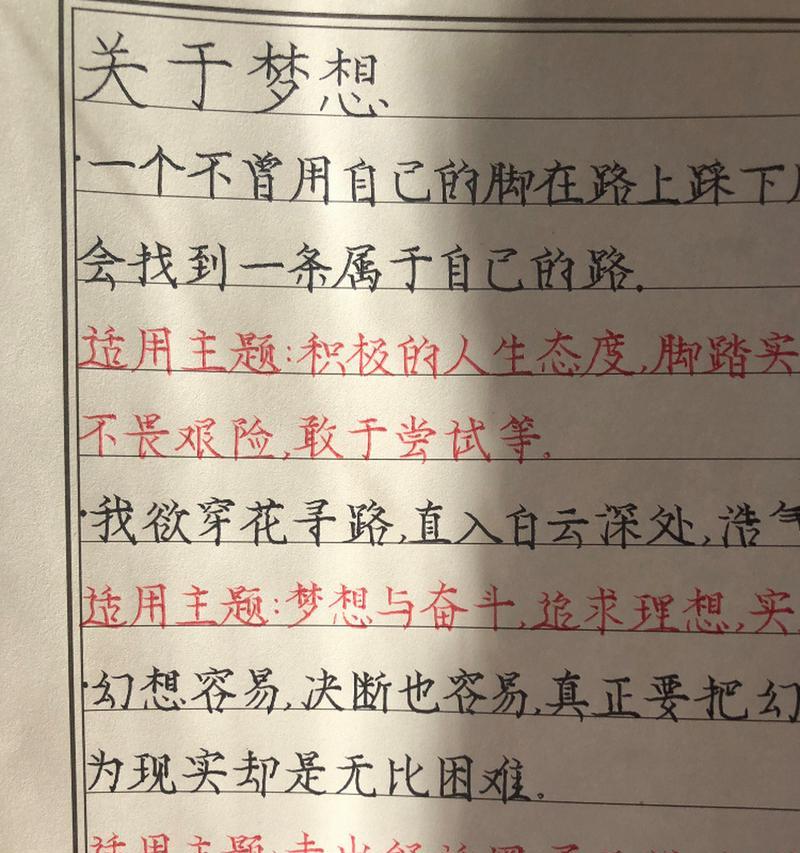 关于梦想
·一个不曾用自己的脚在路上踩下
会找到一条属于自己的路.
适用主题:积极的人生态度,脚踏实
不畏艰险,敢于尝试等。
·我欲穿花寻路,直入白云深处,浩气
适用主题:梦想与奋斗,追求理想,实
·幻想容易,决断也容易,真正要把幻
为现实却是无比困难。
适用主题: